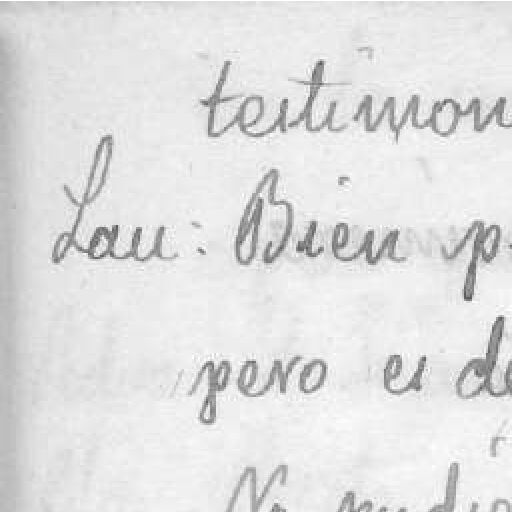 testimon
Lau: Bien p
pero es de
No pudie